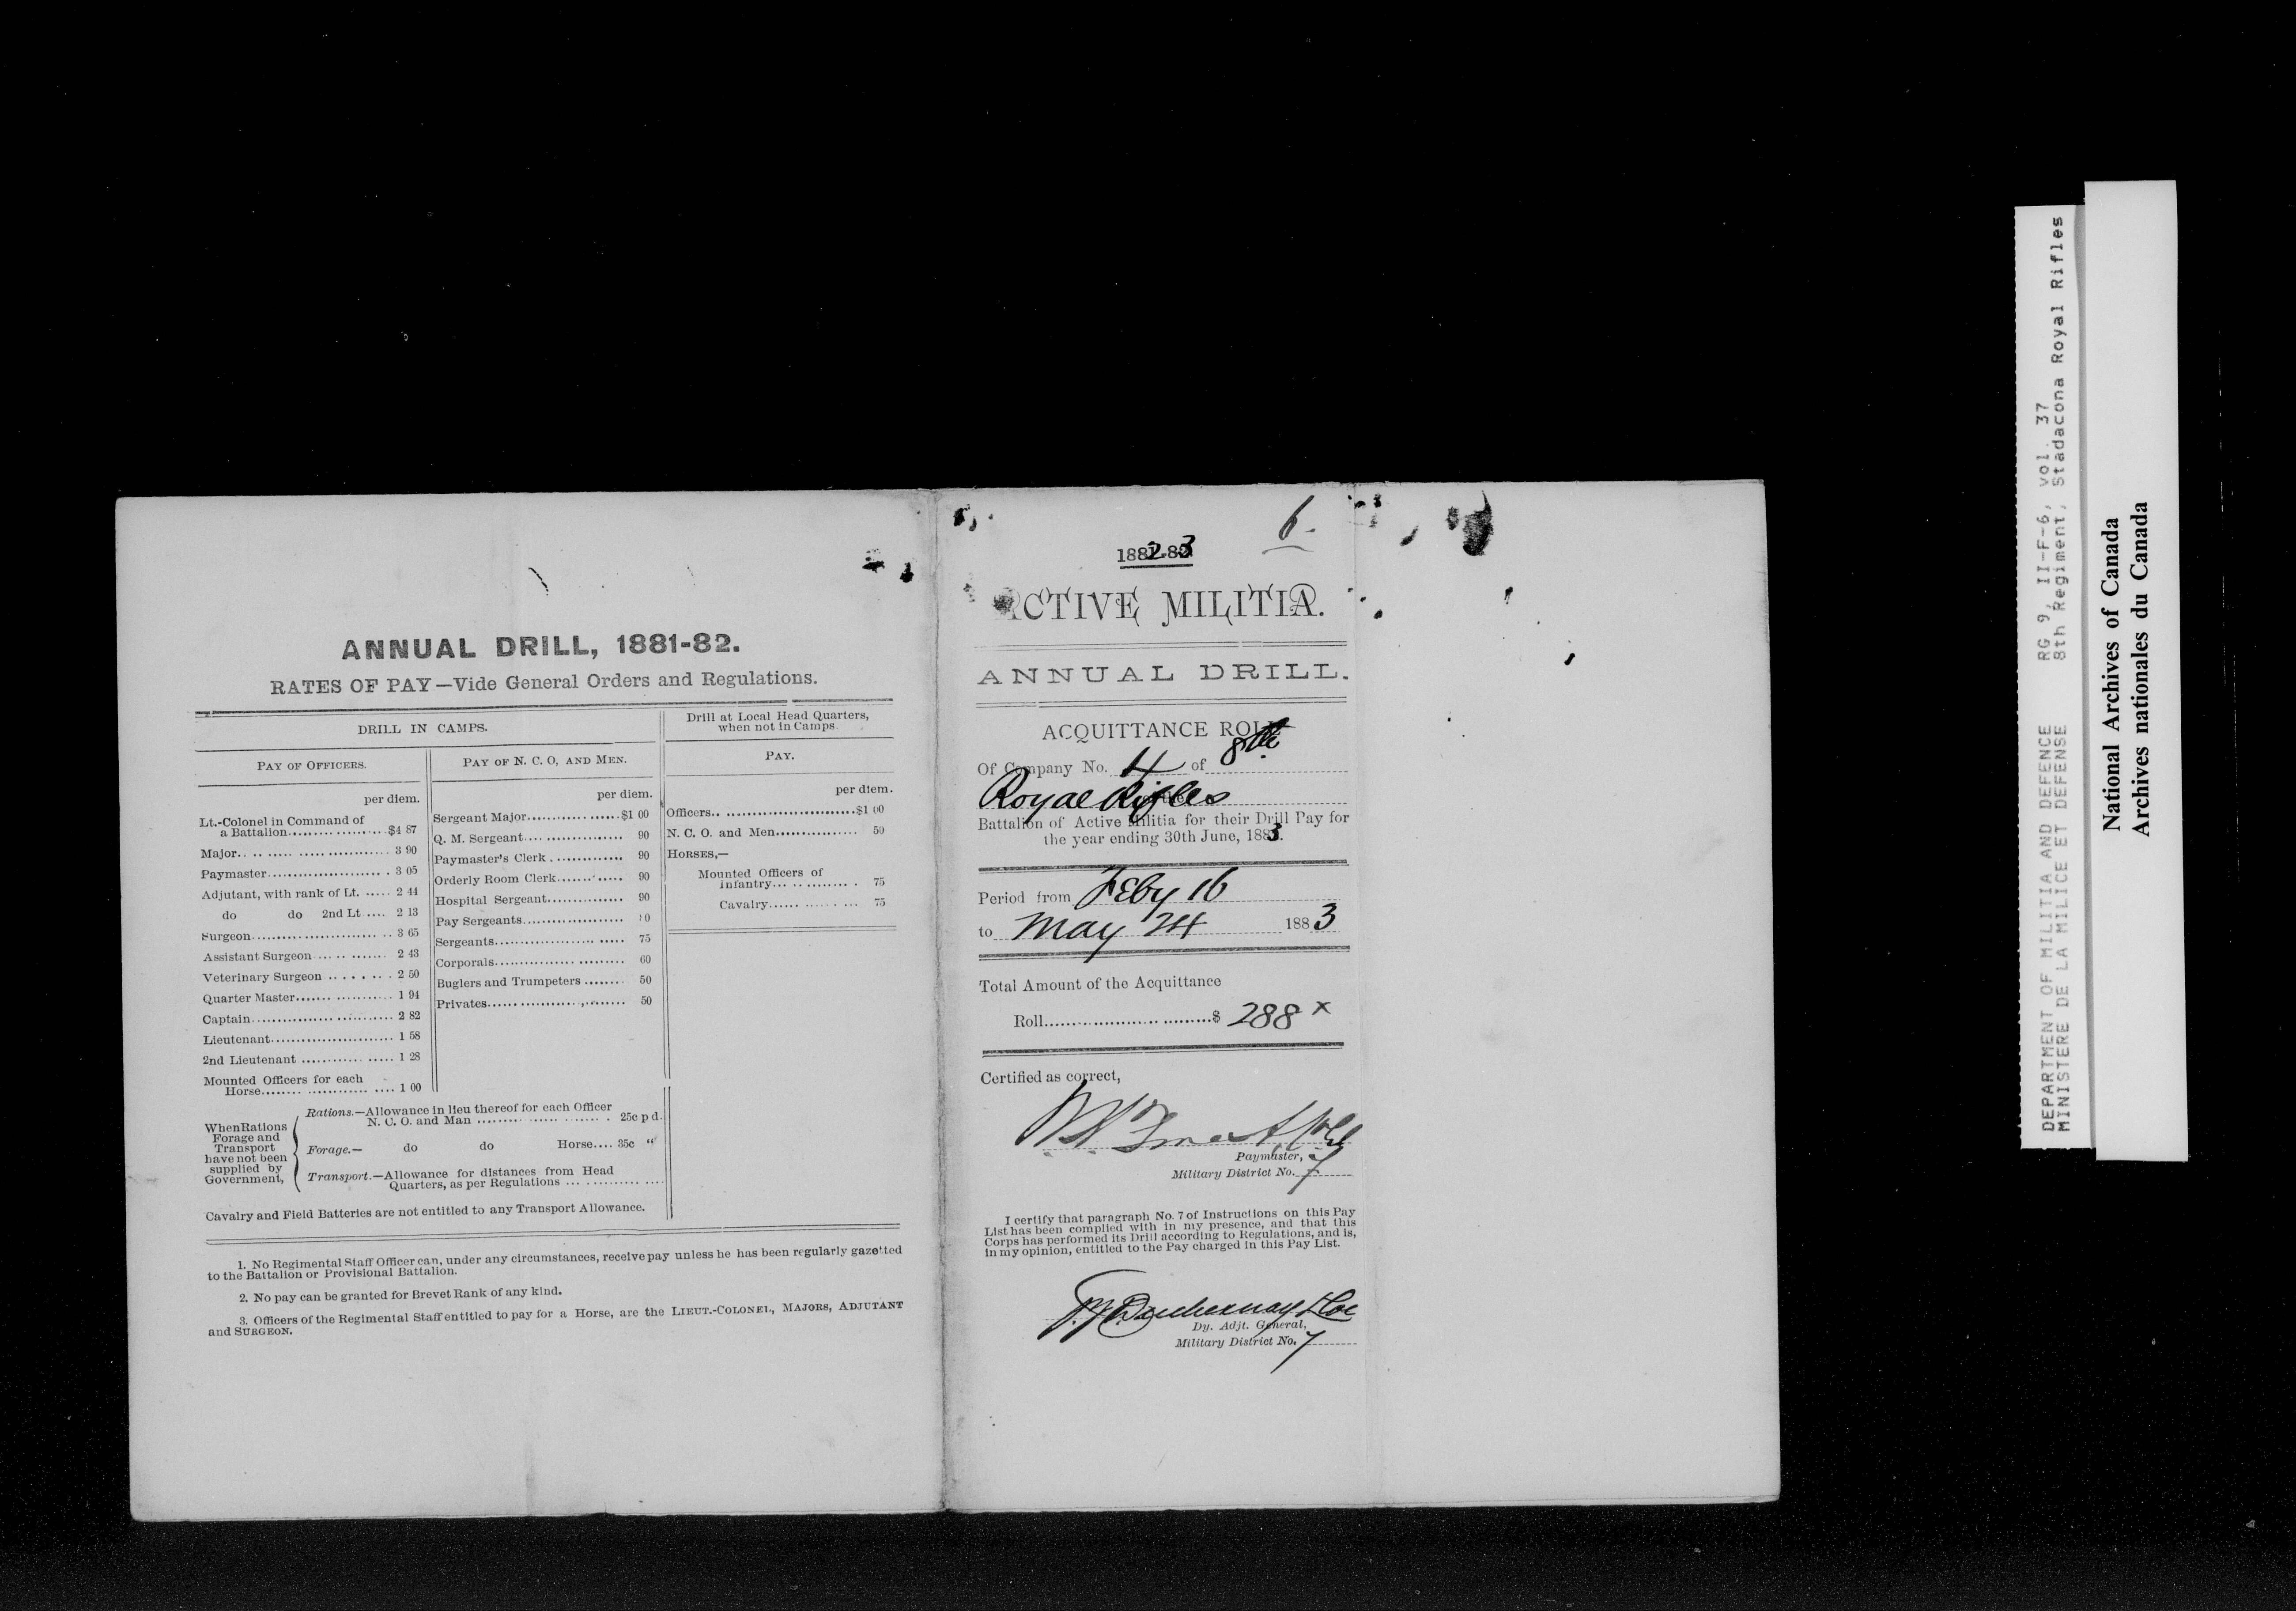 ANNUAL DRILL, 1881-82.
RATES OF PAY—Vide General Orders and Regulations.
DRILL IN CAMPS.
PAY OF OFFICERS.
per diem.
Lt.-Colonel in Command of
a Battalion $4 87
Major 3 90
Paymaster 3 05
Adjutant, with rank of Lt. 2 44
do do 2nd Lt 2 13
Surgeon 3 65
Assistant Surgeon 2 43
Veterinary Surgeon 2 50
Quarter Master 1 94
Captain 2 82
Lieutenant 1 58
2nd Lieutenant 1 28
Mounted Officers for each
Horse 1 00
PAY OF N. C. O, AND MEN.
per diem.
Sergeant Major $1 00
Q. M. Sergeant 90
Paymaster's Clerk 90
Orderly Room Clerk 90
Hospital Sergeant 90
Pay Sergeants
Sergeants 75
Corporals 60
Buglers and Trumpeters 50
Privates 50
Drill at Local Head Quarters,
when not in Camps.
PAY.
per diem.
Officers $1 00
N. C. O. and Men 50
HORSES,—
Mounted Officers of
Infantry 75
Cavalry 75
When Rations
Forage and
Transport
have not been
supplied by
Government,
Rations.—Allowance in lieu thereof for each Officer
N. C. O. and Man 25c p d.
Forage.— do do Horse 35c "
Transport.—Allowance for distances from Head
Quarters, as per Regulations
Cavalry and Field Batteries are not entitled to any Transport Allowance.
1. No Regimental Staff Officer can, under any circumstances, receive pay unless he has been regularly gazetted
to the Battalion or Provisional Battalion.
2. No pay can be granted for Brevet Rank of any kind.
3. Officers of the Regimental Staff entitled to pay for a Horse, are the LIEUT.-COLONEL, MAJORS, ADJUTANT
and SURGEON.
6.
1882-83
ACTIVE MILITIA.
ANNUAL DRILL.
ACQUITTANCE ROLL
Of Company No. 4 of 8th
Royal Rifles
Battalion of Active Militia for their Drill Pay for
the year ending 30th June, 1883.
Period from Feby 16
to May 24 1883
Total Amount of the Acquittance
Roll $ 288 x
Certified as correct,
Paymaster,
Military District No. 7
I certify that paragraph No. 7 of Instructions on this Pay
List has been complied with in my presence, and that this
Corps has performed its Drill according to Regulations, and is,
in my opinion, entitled to the Pay charged in this Pay List.
Dy. Adjt. General,
Military District No. 7
DEPARTMENT OF MILITIA AND DEFENCE RG 9, II-F-6, vol. 37
MINISTERE DE LA MILICE ET DEFENSE 8th Regiment, Stadacona Royal Rifles
National Archives of Canada
Archives nationales du Canada